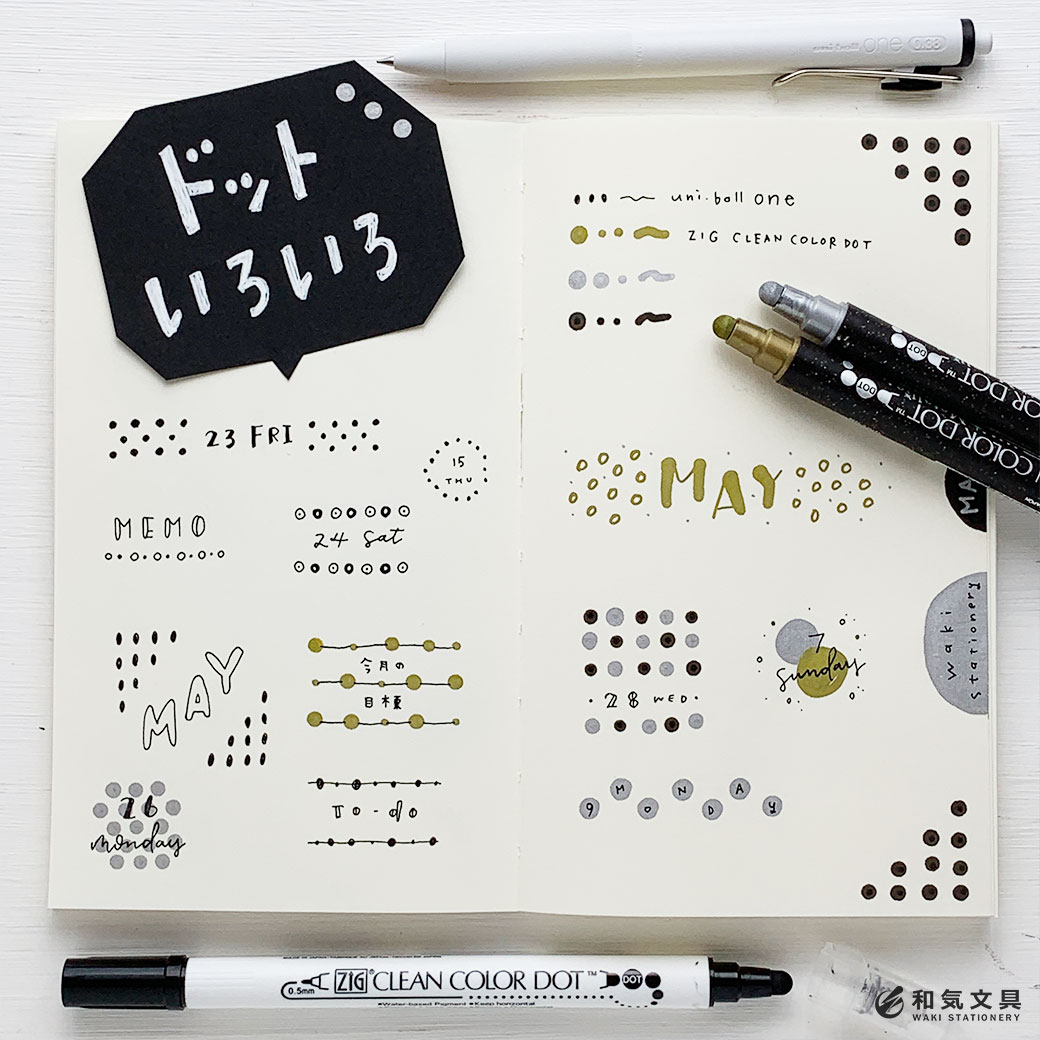 uni-ball one 0.38
ドット
いろいろ
uni-ball one
ZIG CLEAN COLOR DOT
DOT
COLOR DOT™
DOT
COLOR DOT™
23 FRI
15
THU
MEMO
24 Sat
MAY
今月の
目標
26
monday
To-do
MAY
MA
waki
stationery
7
sunday
28 WED
9 MONDAY
0.5mm ZIG® CLEAN COLOR DOT™ DOT
•Water-based Pigment •Keep horizontal
和気文具
WAKI STATIONERY